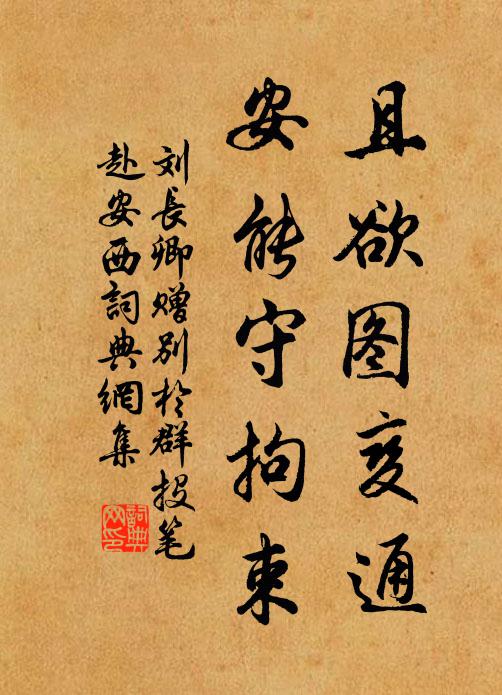 且欲图变通
安能守拘束
刘長卿赠别於群投笔
赴安西詞典網集
詞典网印